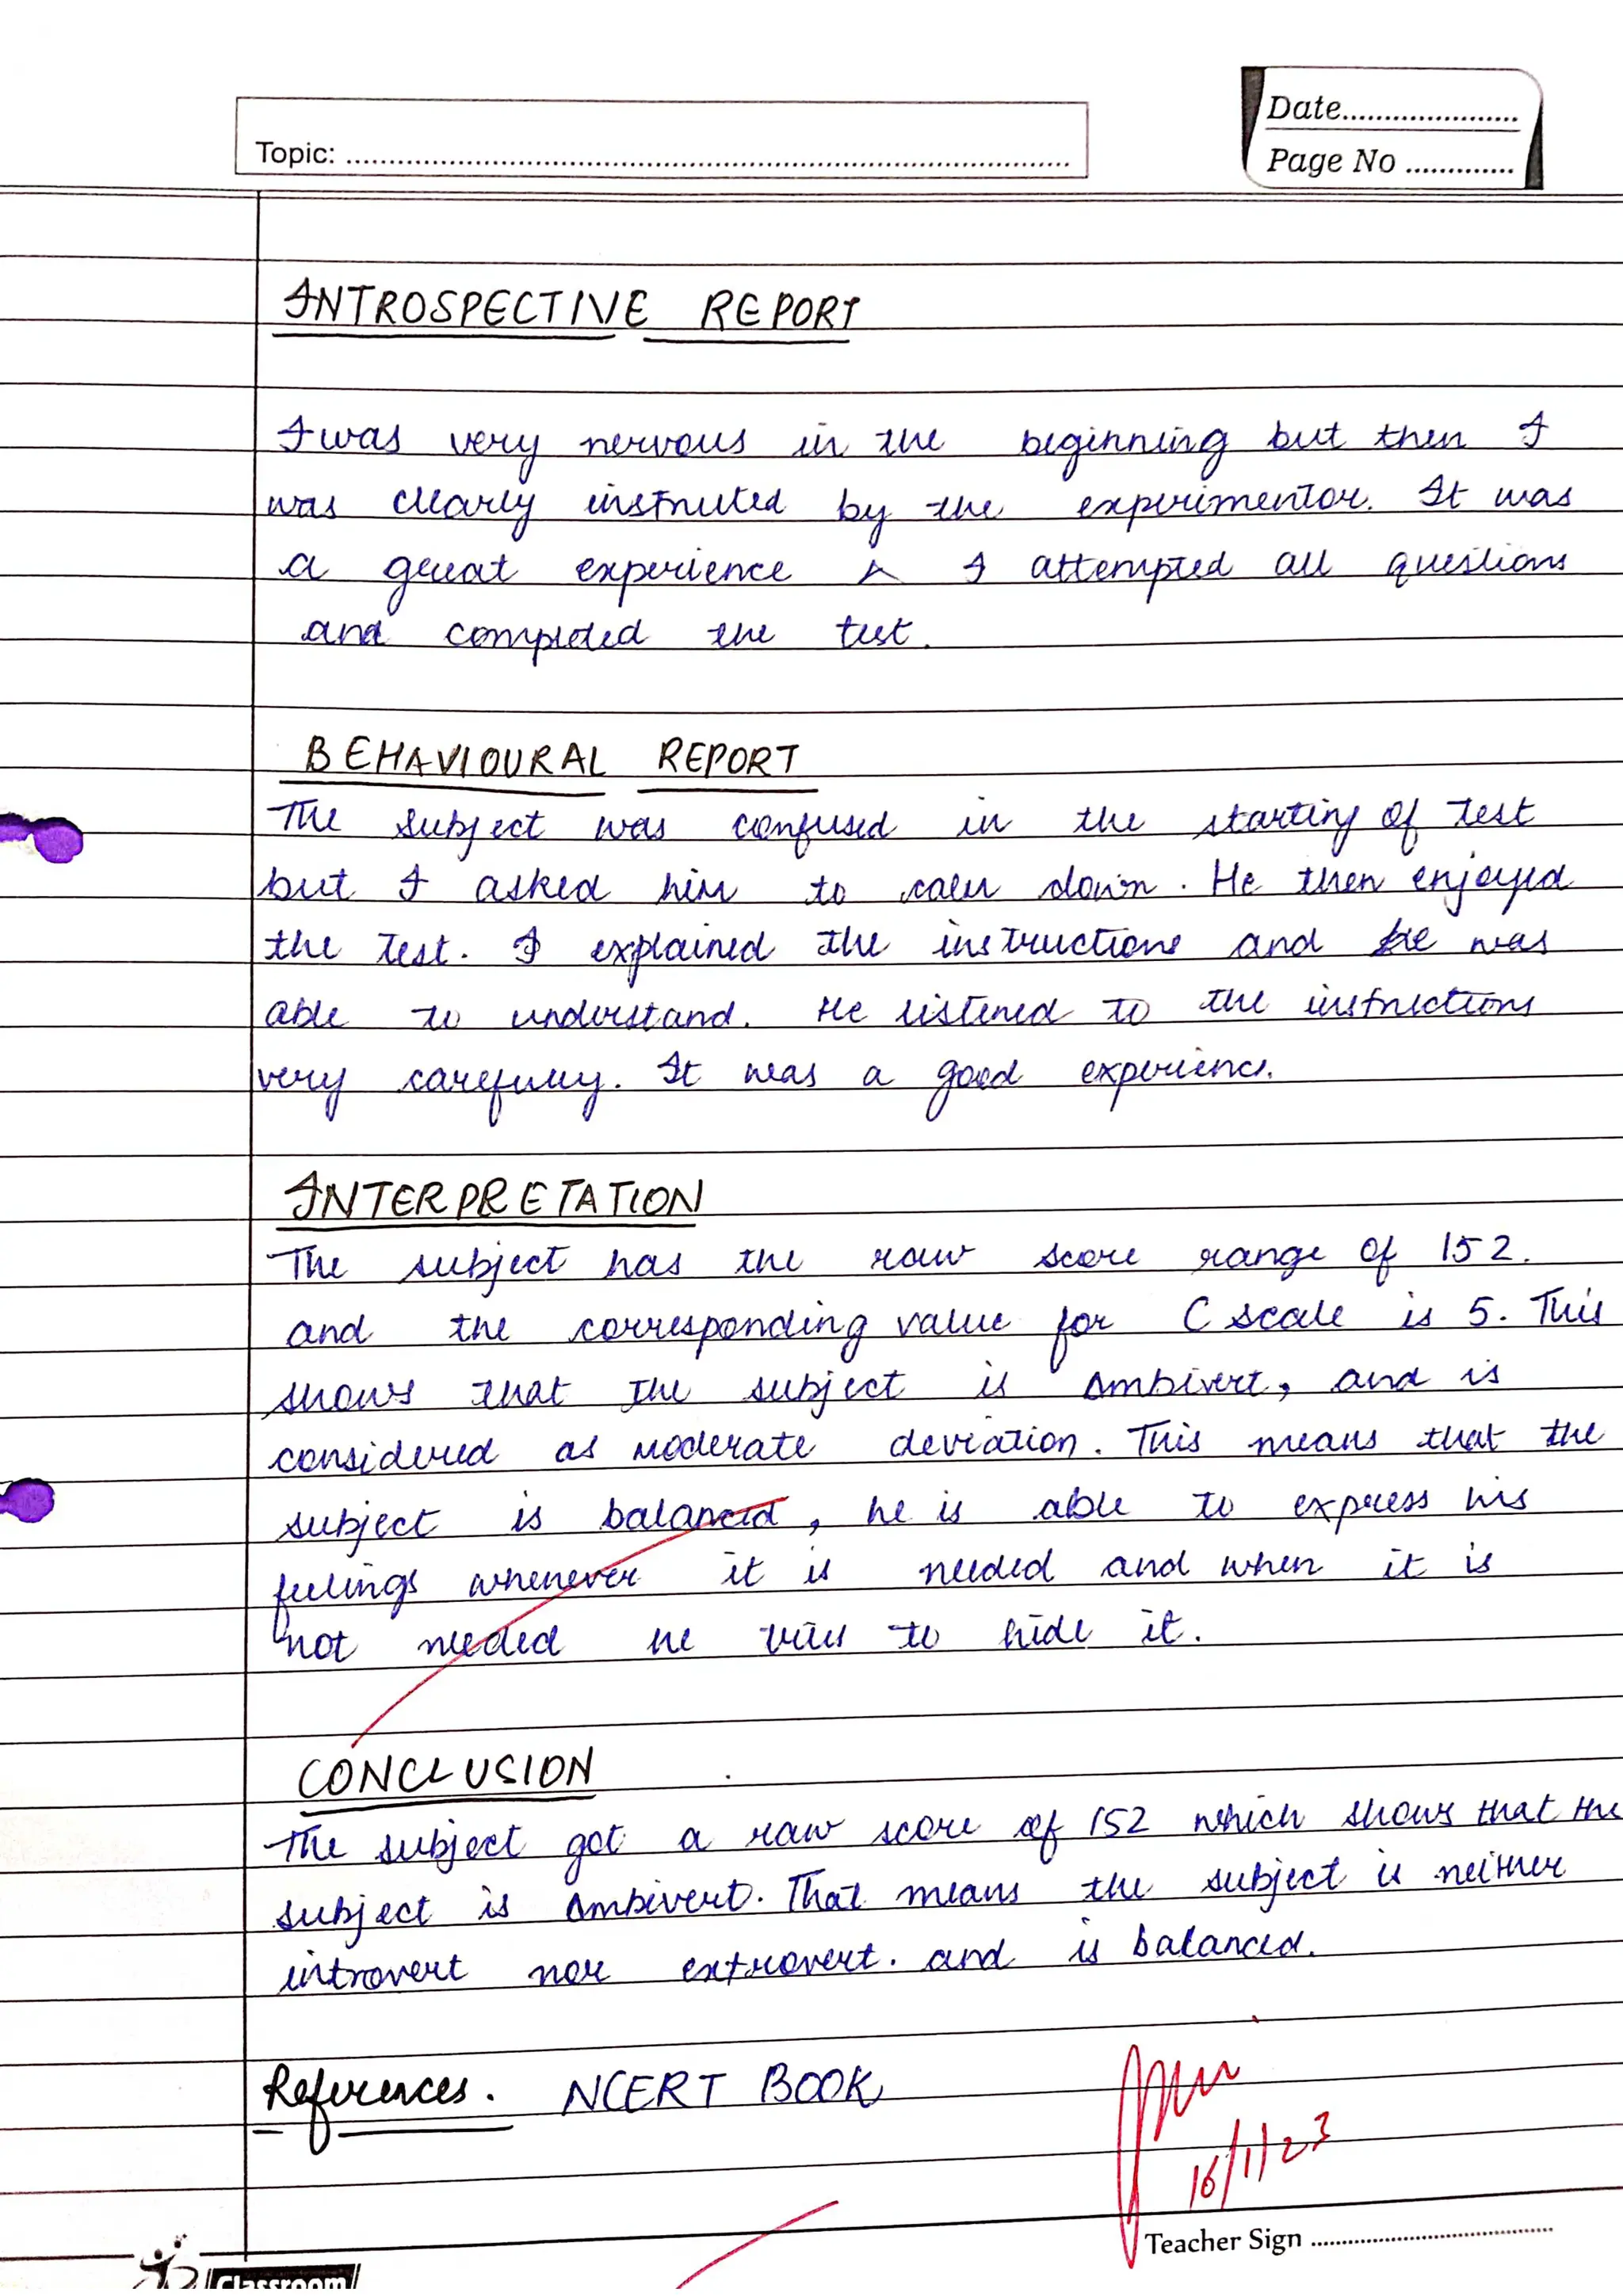 Topic: ........................................................................
Date......................
Page No .............
INTROSPECTIVE REPORT
I was very nervous in the beginning but then I
was clearly instruted by the experimentor. It was
a great experience I attempted all questions
and completed the test.
BEHAVIOURAL REPORT
The subject was confused in the starting of test
but I asked him to calm down. He then enjoyed
the test. I explained the instructions and he was
able to understand. He listened to the instructions
very carefully. It was a good experience.
INTERPRETATION
The subject has the raw score range of 152.
and the corresponding value for C scale is 5. This
shows that the subject is Ambivert, and is
considered as moderate deviation. This means that the
subject is balanced, he is able to express his
feelings whenever it is needed and when it is
not needed he tries to hide it.
CONCLUSION
The subject got a raw score of 152 which shows that the
subject is Ambivert. That means the subject is neither
introvert nor extrovert. and is balanced.
References. NCERT BOOK
16/1/23
Teacher Sign ...................................
Classroom